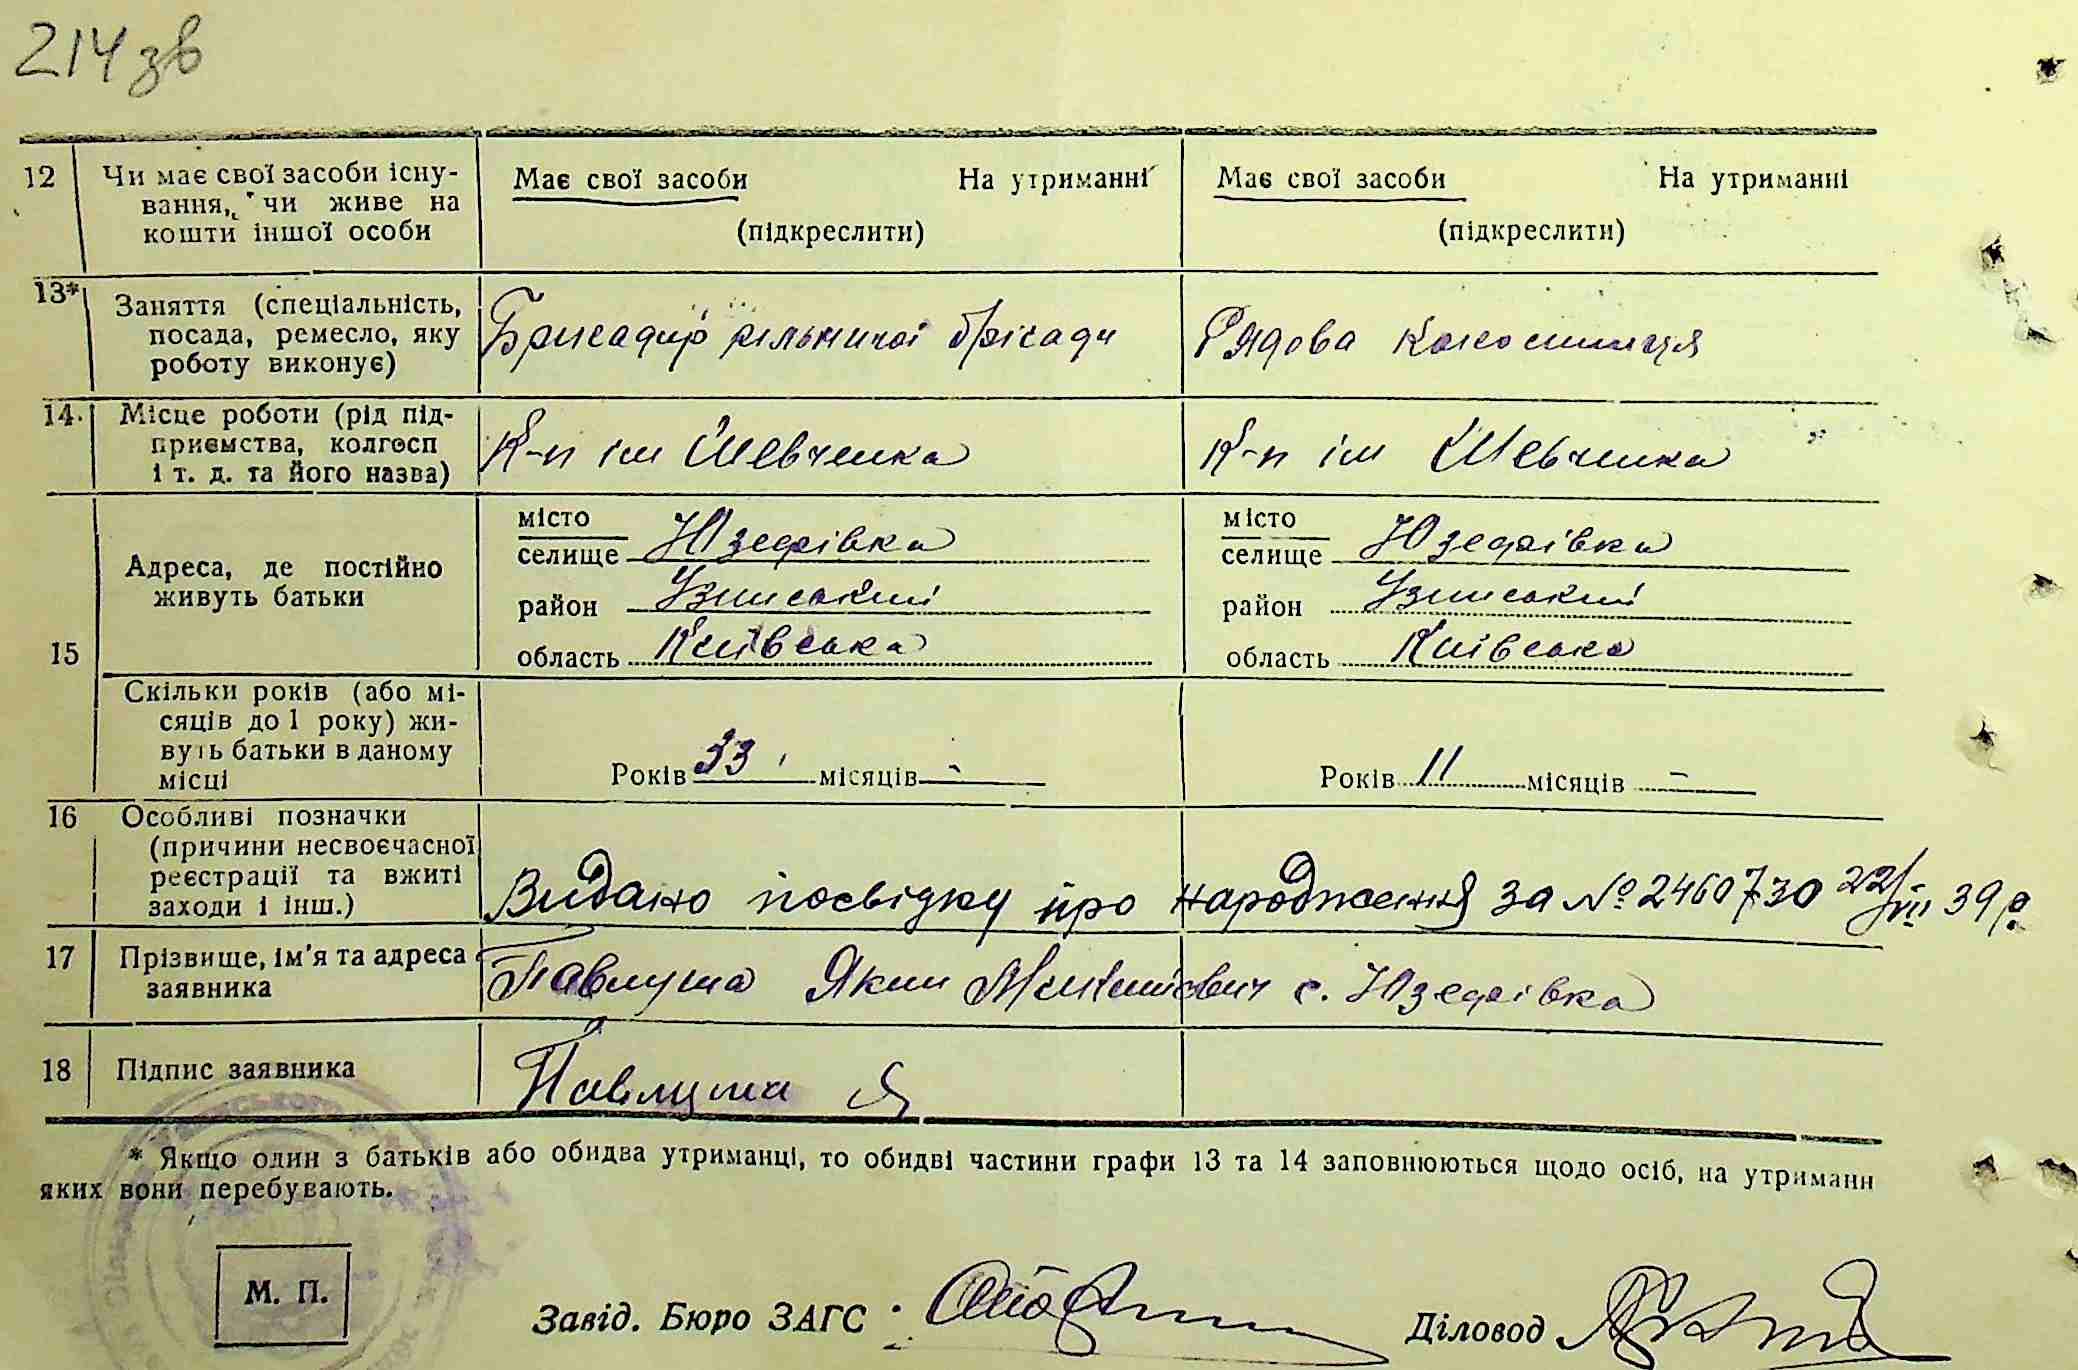 214 зв
12 Чи має свої засоби існу-
вання, чи живе на
кошти іншої особи
Має свої засоби На утриманні
(підкреслити)
Має свої засоби На утриманні
(підкреслити)
13* Заняття (спеціальність,
посада, ремесло, яку
роботу виконує)
Бригадир рільничої брігади
Рядова колгоспниця
14. Місце роботи (рід під-
приємства, колгосп
і т. д. та його назва)
К-п ім Шевченка
К-п ім Шевченка
15 Адреса, де постійно
живуть батьки
місто
селище Юзефівка
район Узинський
область Київська
місто
селище Юзефівка
район Узинський
область Київська
Скільки років (або мі-
сяців до 1 року) жи-
вуть батьки в даному
місці
Років 33 місяців -
Років 11 місяців -
16 Особливі позначки
(причини несвоєчасної
реєстрації та вжиті
заходи і інш.)
Видано посвідку про народження за № 2460730 22/VII 39 р.
17 Прізвище, ім'я та адреса
заявника
Павлуша Яким с. Юзефівка
18 Підпис заявника
Павлуша Я
* Якщо один з батьків або обидва утриманці, то обидві частини графи 13 та 14 заповнюються щодо осіб, на утриманн
яких вони перебувають.
М. П.
Завід. Бюро ЗАГС
Діловод